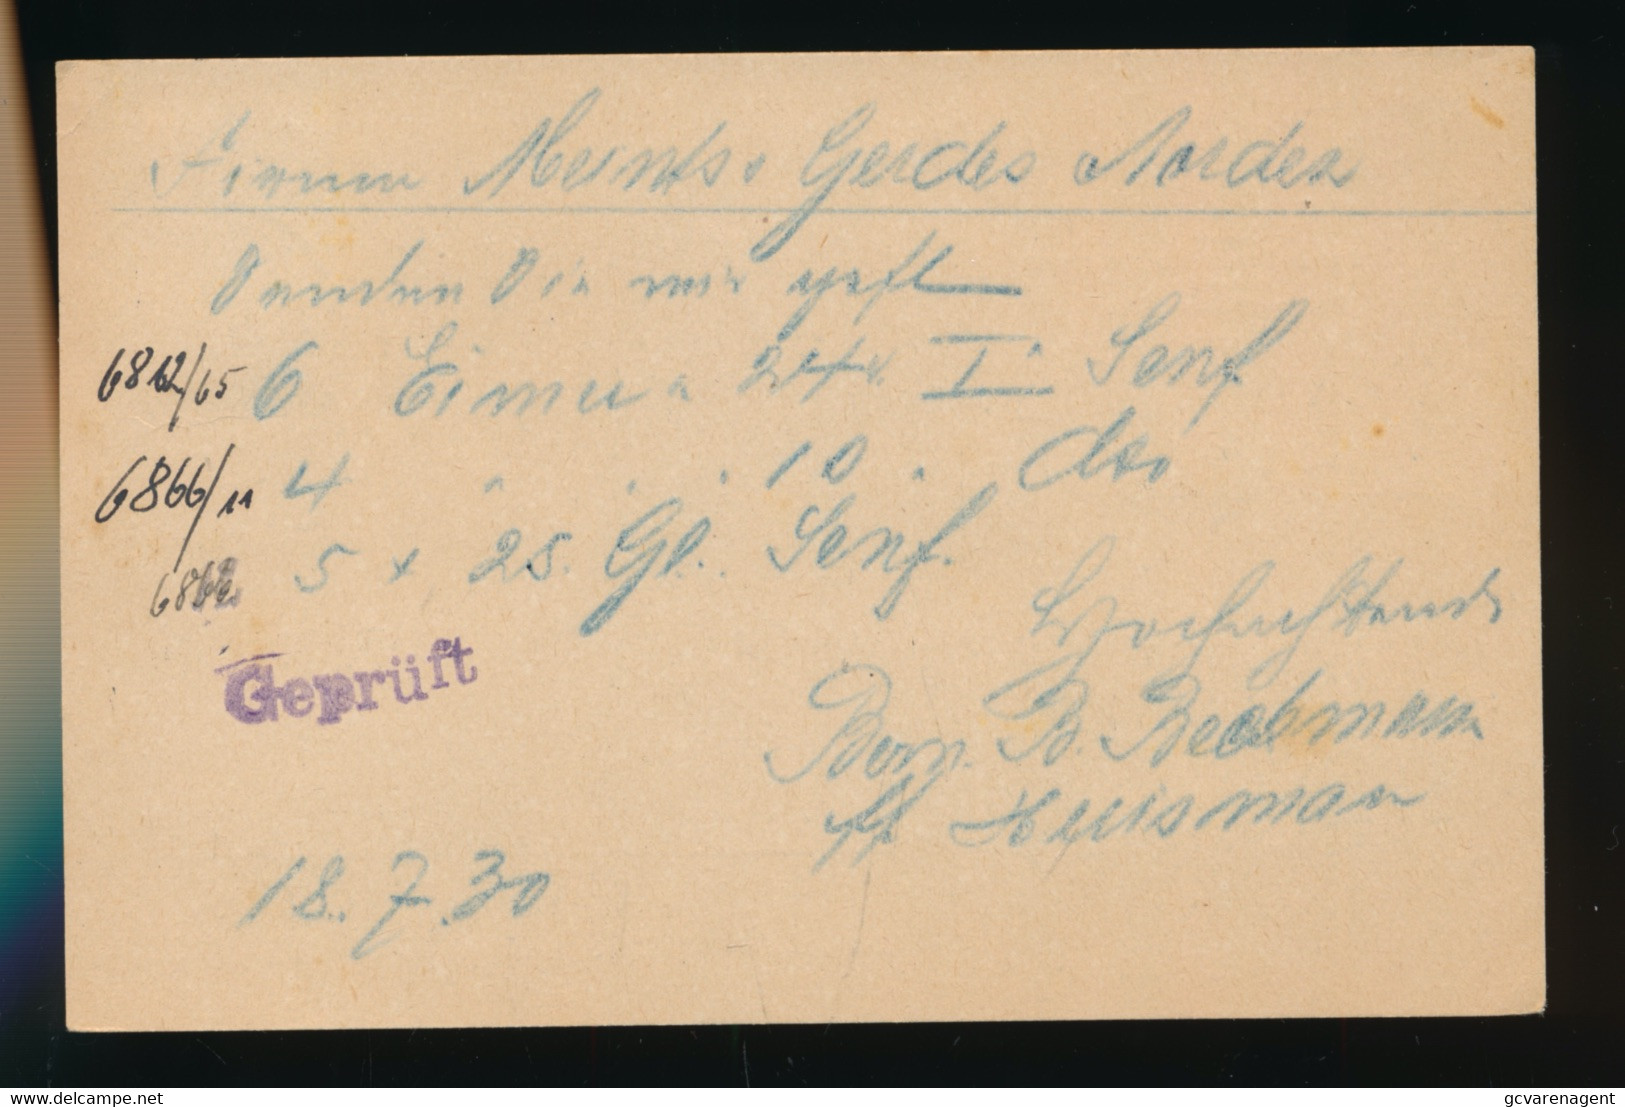 Firma Meints & Gerdes Norden
Senden Sie mir gefl
6812/65 6 Eimer a 24 I Senf
6866/11 4 " " 10 " dto
5 x 25 Gl. Senf.
Hochachtend
Geprüft
Bern. B. Beckmann
Huisman
18.7.30
www.delcampe.net
gcvarenagent